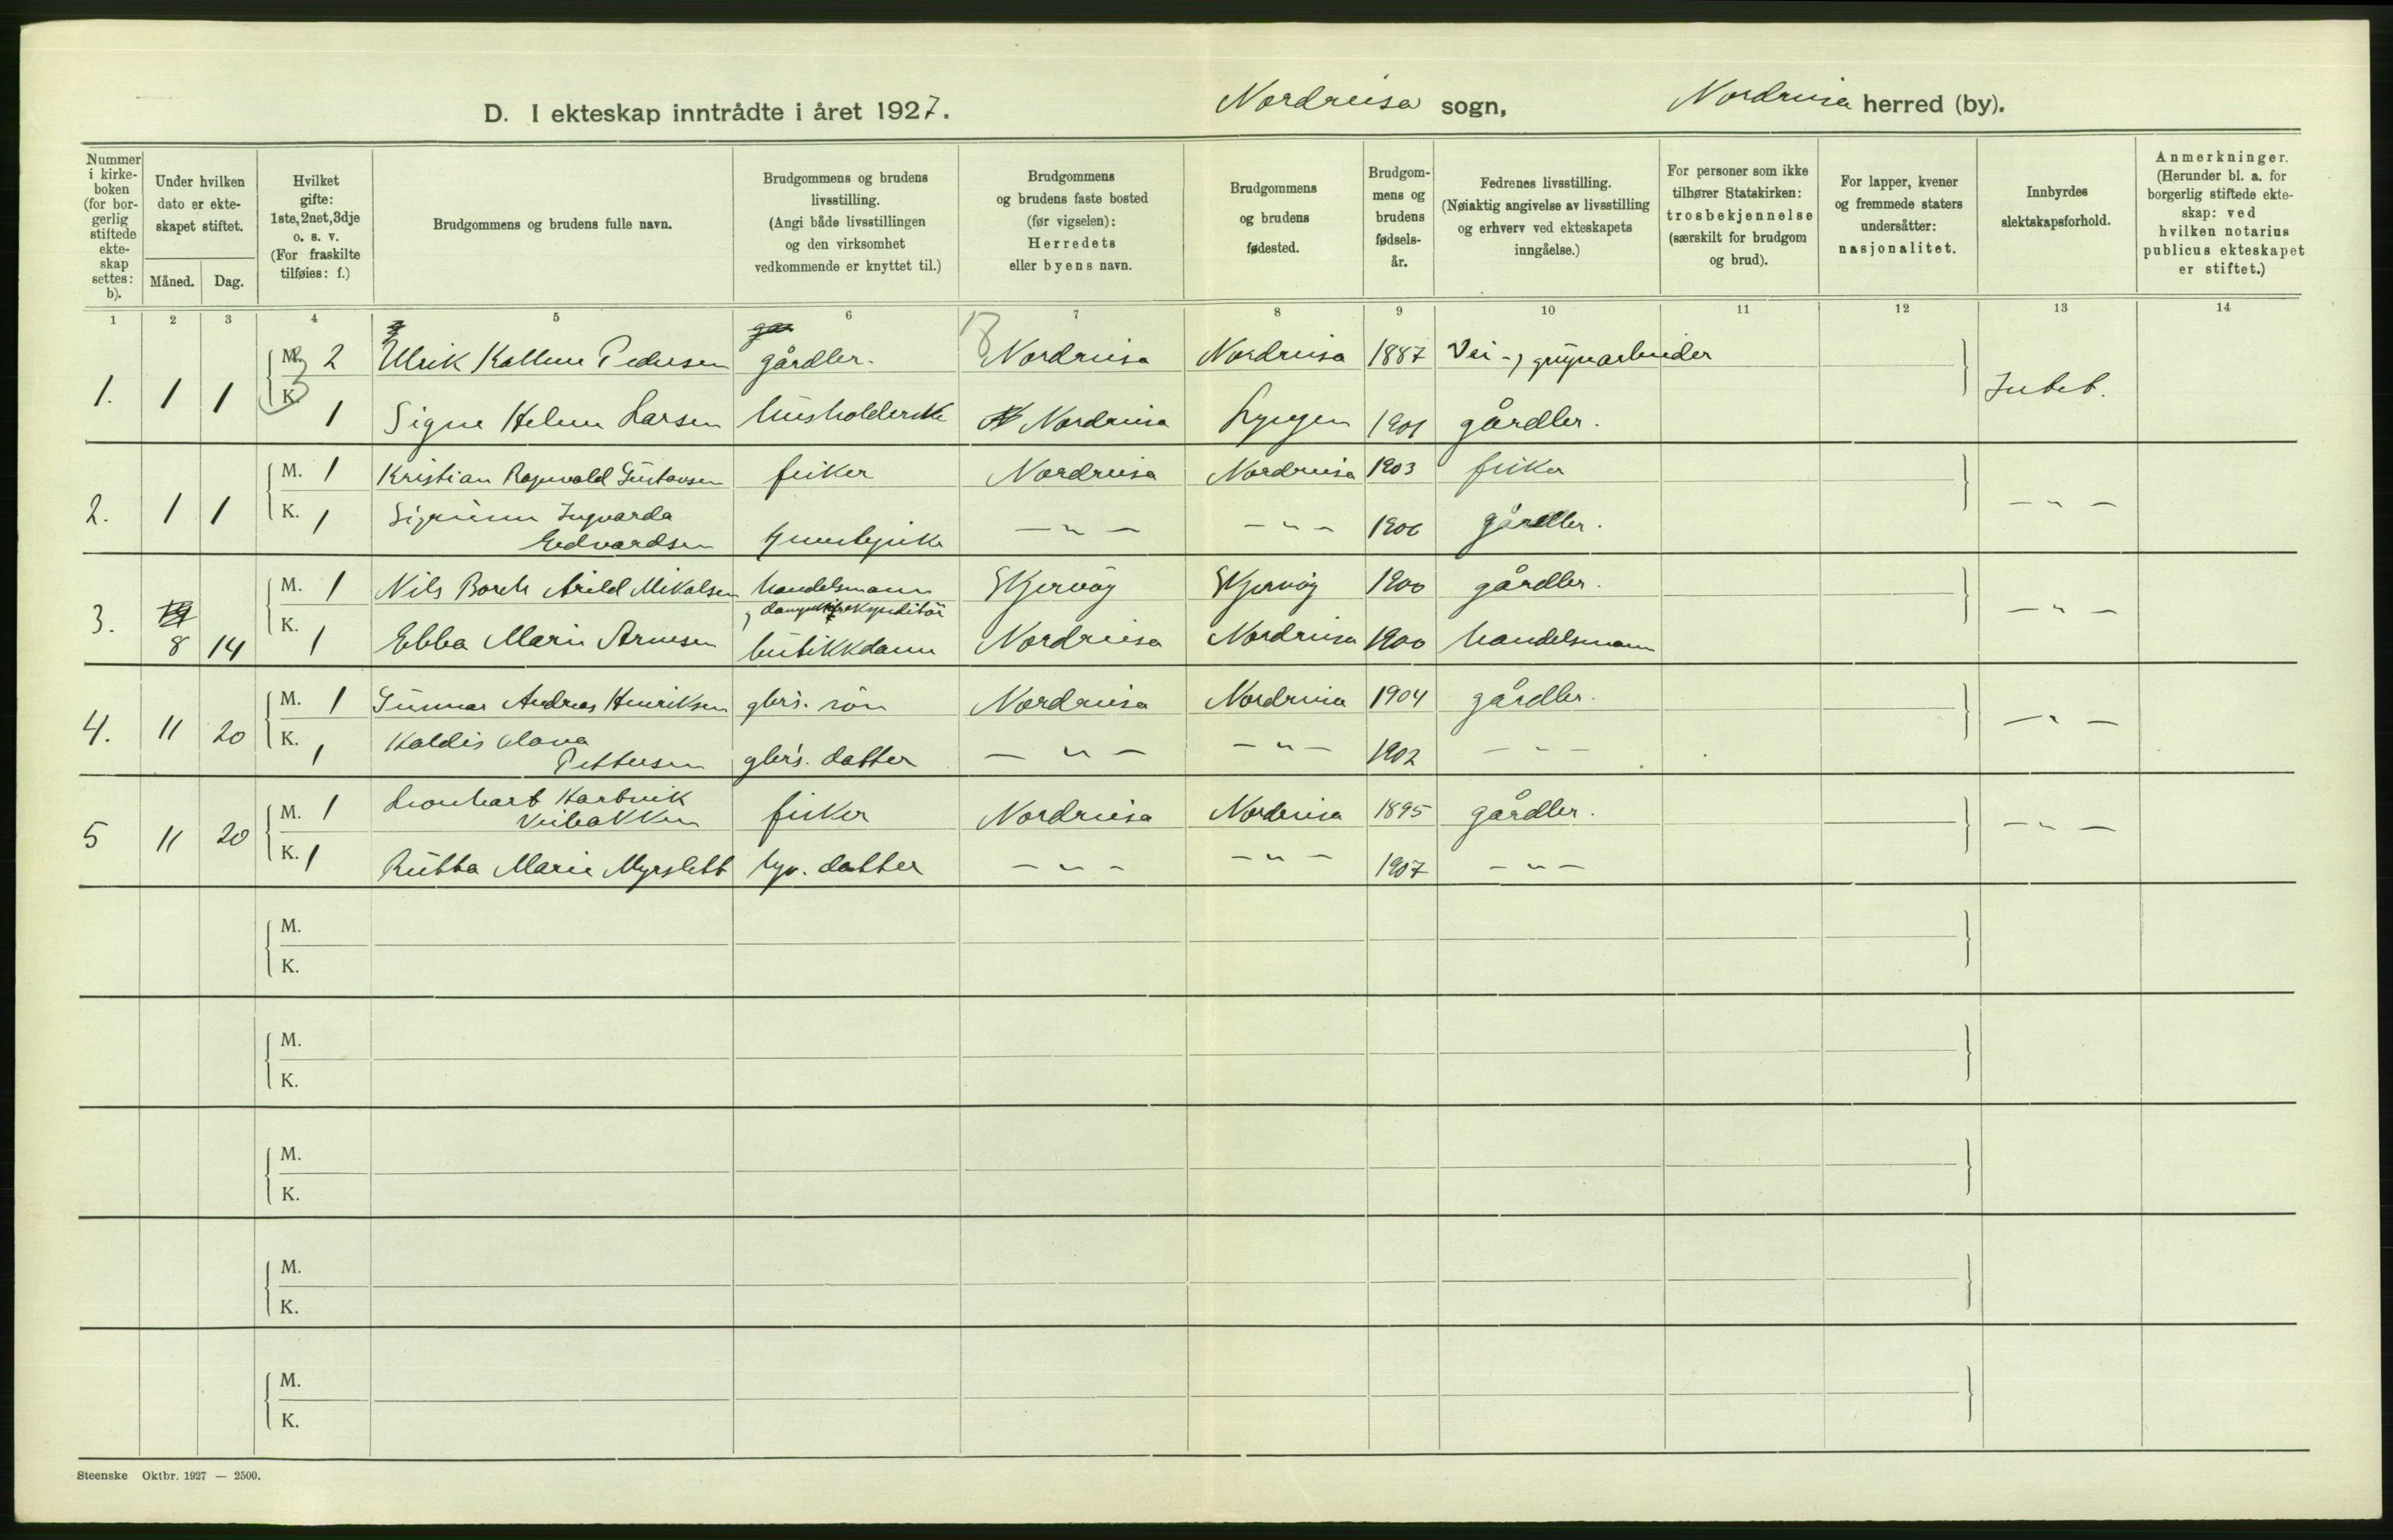 D. I ekteskap inntrådte i året 1927. Nordreisa sogn, Nordreisa herred (by).
Nummer i kirke-boken (for bor-gerlig stiftede ekte-skap settes: b).
Under hvilken dato er ekte-skapet stiftet.
Måned. Dag.
Hvilket gifte: 1ste, 2net, 3dje o. s. v. (For fraskilte tilføies: f.)
Brudgommens og brudens fulle navn.
Brudgommens og brudens livsstilling. (Angi både livsstillingen og den virksomhet vedkommende er knyttet til.)
Brudgommens og brudens faste bosted (før vigselen): Herredets eller byens navn.
Brudgommens og brudens fødested.
Brudgom-mens og brudens fødsels-år.
Fedrenes livsstilling. (Nøiaktig angivelse av livsstilling og erhverv ved ekteskapets inngåelse.)
For personer som ikke tilhører Statskirken: trosbekjennelse (særskilt for brudgom og brud).
For lapper, kvener og fremmede staters undersåtter: nasjonalitet.
Innbyrdes slektskapsforhold.
Anmerkninger. (Herunder bl. a. for borgerlig stiftede ekte-skap: ved hvilken notarius publicus ekteskapet er stiftet.)
1 2 3 4 5 6 7 8 9 10 11 12 13 14
1. 1 1 M. 2 Ulrik Pedersen gårdbr. Nordreisa Nordreisa 1887 Vei- Intet.
K. 1 Signe Helene Larsen husholderske Nordreisa Lyngen 1901 gårdbr.
2. 1 1 M. 1 Kristian Ragnvald Gustavsen fisker Nordreisa Nordreisa 1903 fisker — " —
K. 1 Ingvarda
Edvardsen — " — — " — 1906 gårdbr.
3. 8 14 M. 1 Nils Borch Arild Mikalsen handelsmann Skjervøy Skjervøy 1900 gårdbr. — " —
K. 1 Ebba Marie Arnesen butikkdame Nordreisa Nordreisa 1900 handelsmann
4. 11 20 M. 1 Gunnar Andreas Henriksen gbrs. søn Nordreisa Nordreisa 1904 gårdbr. — " —
K. 1
Pettersen gbrs. datter — " — — " — 1902 — " —
5 11 20 M. 1 Leonhart Hartvik
Veibakken fisker Nordreisa Nordreisa 1895 gårdbr. — " —
K. 1 Marie Myrslett datter — " — — " — 1907 — " —
M.
K.
M.
K.
M.
K.
M.
K.
M.
K.
Steenske Oktbr. 1927 — 2500.